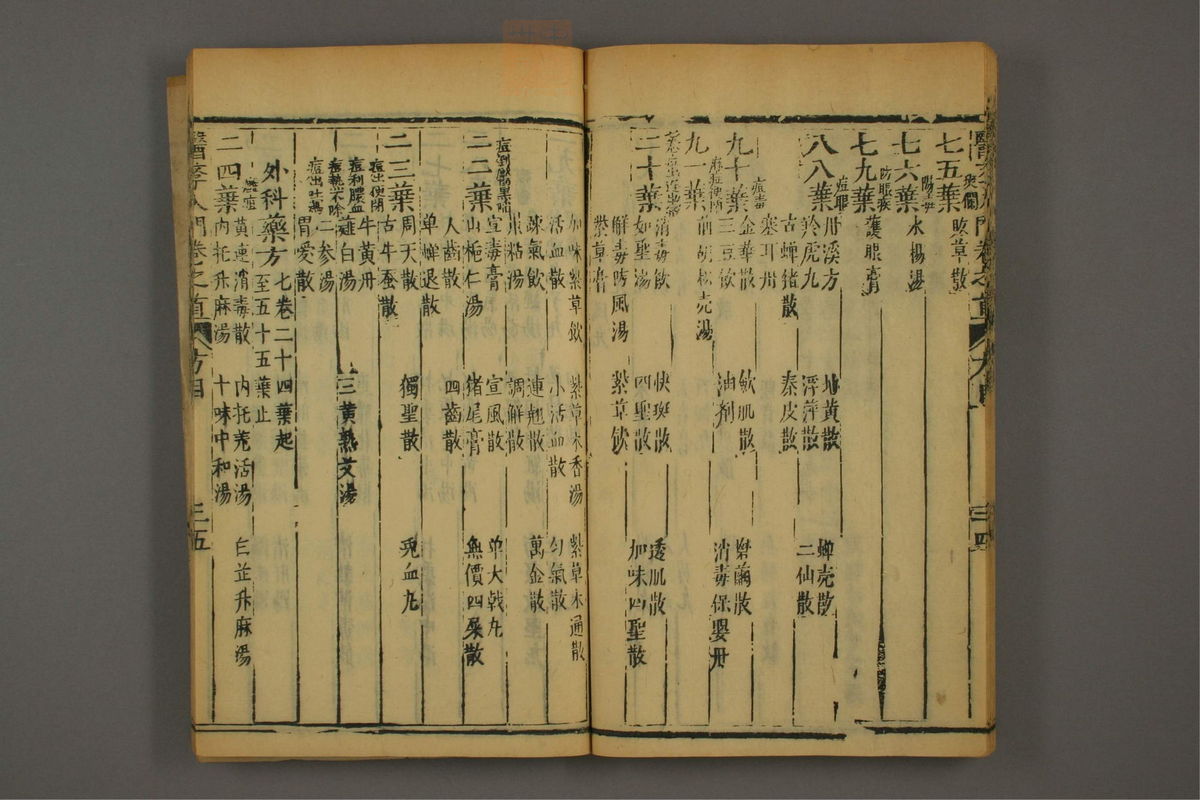 七五葉
敗草散
七六葉
水楊湯
七九葉
護眼膏
八八葉
丹溪方 地黃散 蟬壳散
羚虎丸 浮萍散 二仙散
古蟬猪散 秦皮散
塞耳丹
九十葉
痘毒
金華散 飲肌散
三豆飲 油剤 消毒保嬰丹
九一葉
前胡枳壳湯
二十葉
消毒飲 快斑散 透肌散
如聖湯 四聖散 加味四聖散
解毒防風湯 紫草飲
紫草膏
三四
加味紫草飲 紫草木香湯 紫草木通散
活血散 小活血散 匀氣散
疎氣飲 連翹散 萬金散
鼠粘湯 調解散
二二葉
宣毒膏 宣風散 單大戟丸
山梔仁湯 猪尾膏 無價四屎散
人齒散 四齒散
單蟬退散
二三葉
周天散 獨聖散 兎血丸
古牛蚕散
牛黄丹
痘利膿血
薤白湯 三黄熟艾湯
二參湯
痘出吐瀉
胃愛散
外科藥方七卷二十四葉起
至五十五葉止
二四葉
癰疽
黃連消毒散 內托羌活湯 白芷升麻湯
內托升麻湯 十味中和湯
醫學入門卷之首 方四 三五